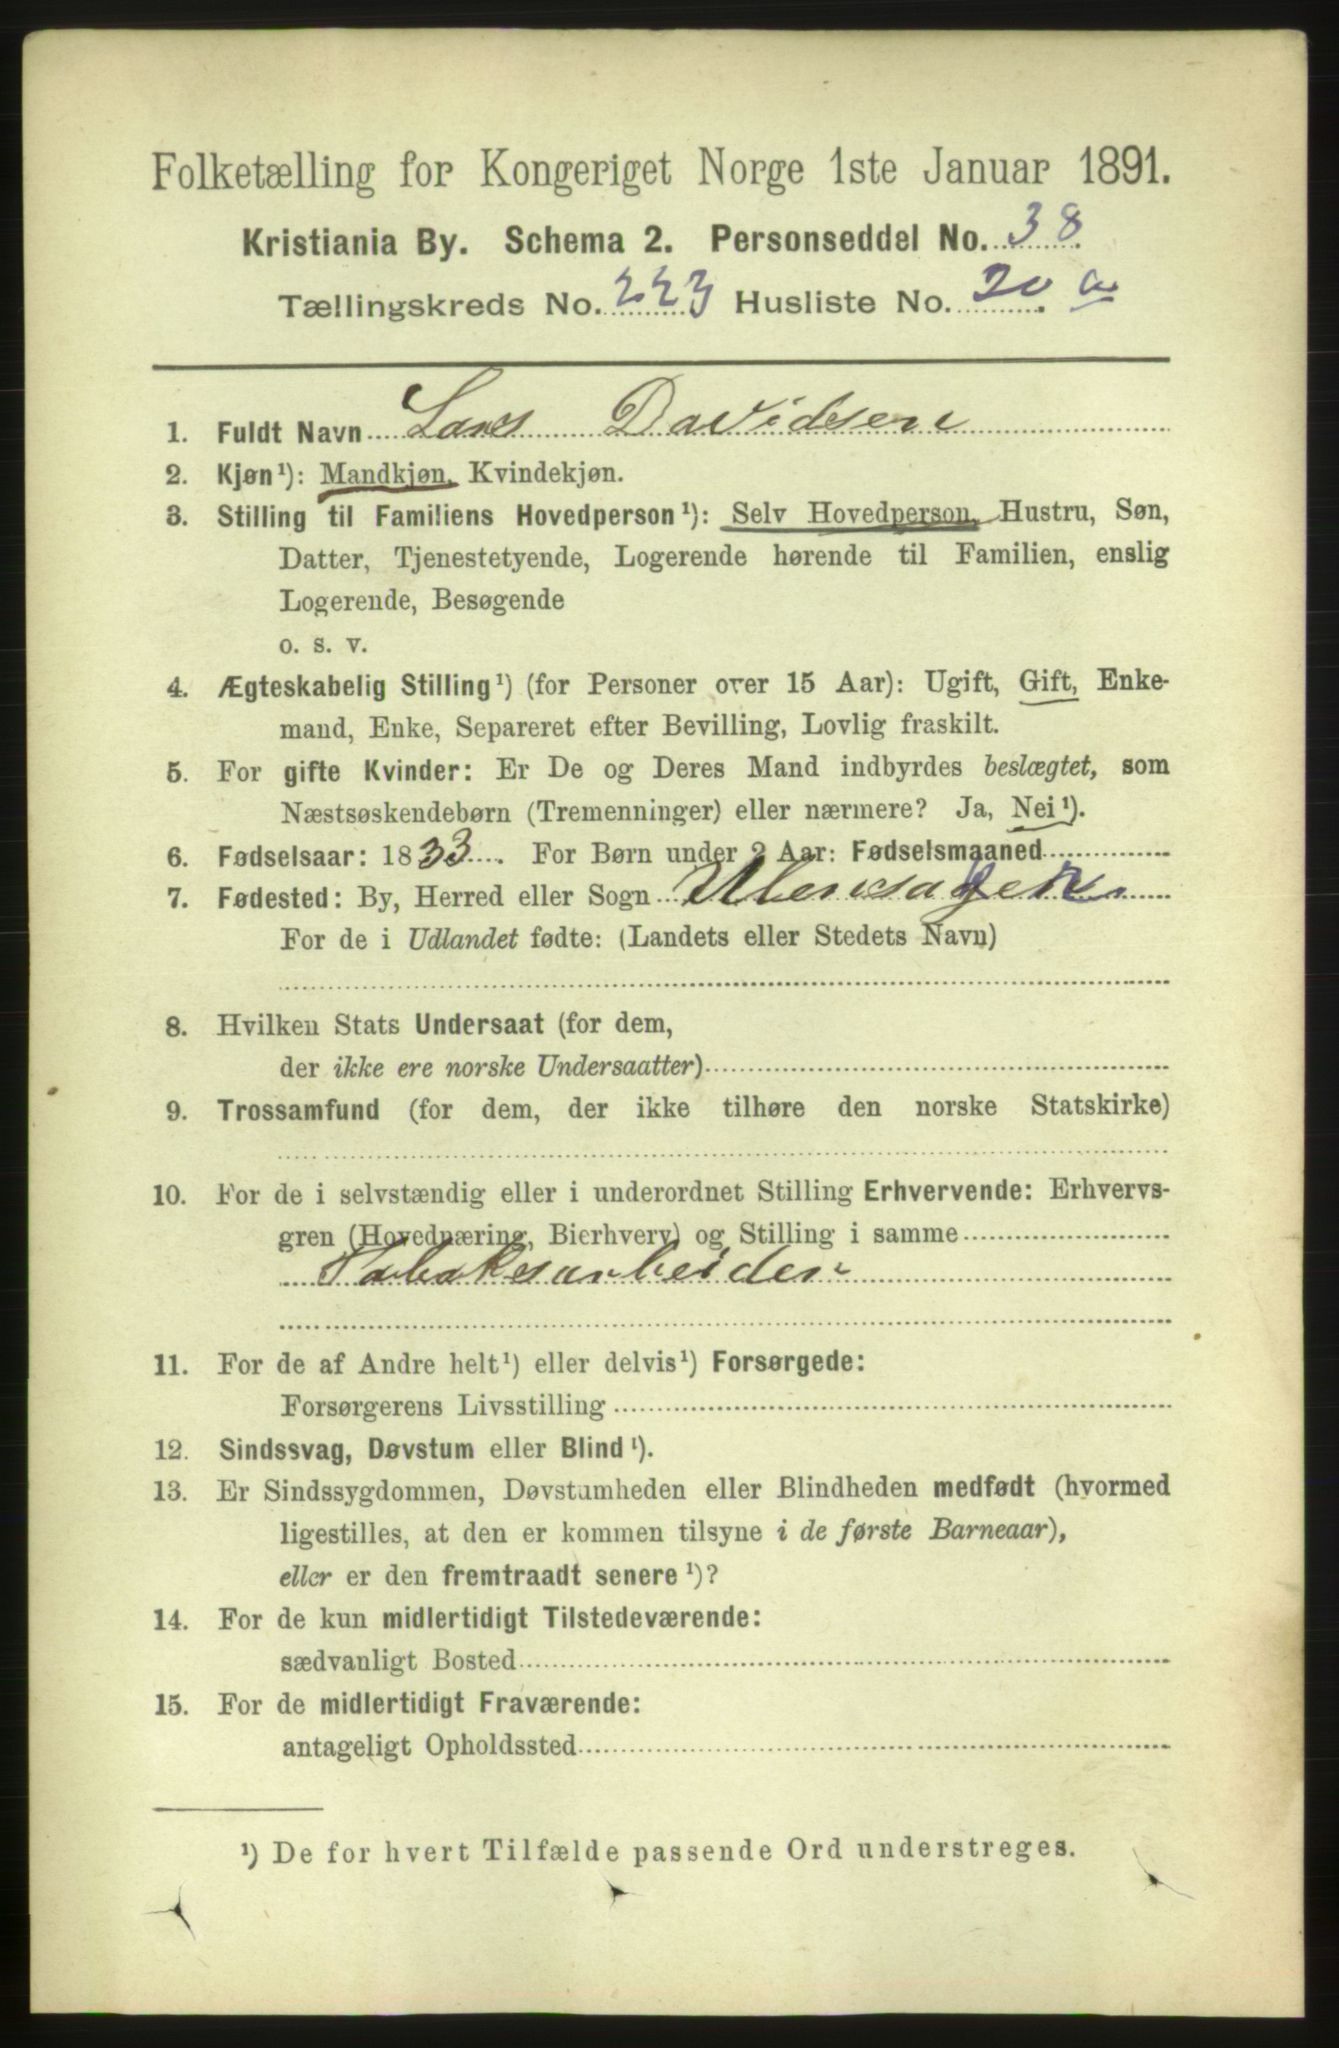 Folketælling for Kongeriget Norge 1ste Januar 1891.
Kristiania By. Schema 2. Personseddel No. 38.
Tællingskreds No. 223 Husliste No. 20 a
1. Fuldt Navn Lars Davidsen
2. Kjøn¹): Mandkjøn, Kvindekjøn.
3. Stilling til Familiens Hovedperson¹): Selv Hovedperson, Hustru, Søn,
Datter, Tjenestetyende, Logerende hørende til Familien, enslig
Logerende, Besøgende
o. s. v.
4. Ægteskabelig Stilling¹) (for Personer over 15 Aar): Ugift, Gift, Enke-
mand, Enke, Separeret efter Bevilling, Lovlig fraskilt.
5. For gifte Kvinder: Er De og Deres Mand indbyrdes beslægtet, som
Næstsøskendebørn (Tremenninger) eller nærmere? Ja, Nei¹).
6. Fødselsaar: 1833. For Børn under 2 Aar: Fødselsmaaned
7. Fødested: By, Herred eller Sogn
For de i Udlandet fødte: (Landets eller Stedets Navn)
8. Hvilken Stats Undersaat (for dem,
der ikke ere norske Undersaatter)
9. Trossamfund (for dem, der ikke tilhøre den norske Statskirke)
10. For de i selvstændig eller i underordnet Stilling Erhvervende: Erhvervs-
gren (Hovednæring, Bierhverv) og Stilling i samme
Tabaksarbeider
11. For de af Andre helt¹) eller delvis¹) Forsørgede:
Forsørgerens Livsstilling
12. Sindssvag, Døvstum eller Blind¹).
13. Er Sindssygdommen, Døvstumheden eller Blindheden medfødt (hvormed
ligestilles, at den er kommen tilsyne i de første Barneaar),
eller er den fremtraadt senere¹)?
14. For de kun midlertidigt Tilstedeværende:
sædvanligt Bosted
15. For de midlertidigt Fraværende:
antageligt Opholdssted
¹) De for hvert Tilfælde passende Ord understreges.